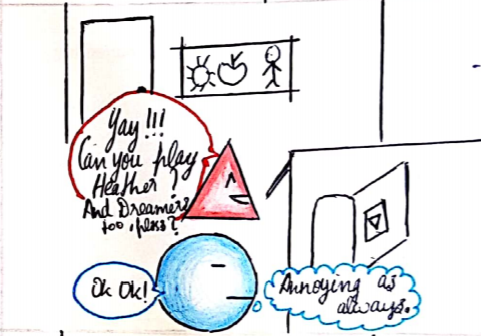 Yay !!!
Can you play
Heather ?
And Dreamers
too, pless?
Ok Ok!
Annoying as
always.